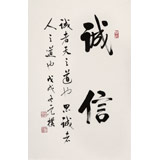 誠信
誠者天之道也思誠者
人之道也戊戌